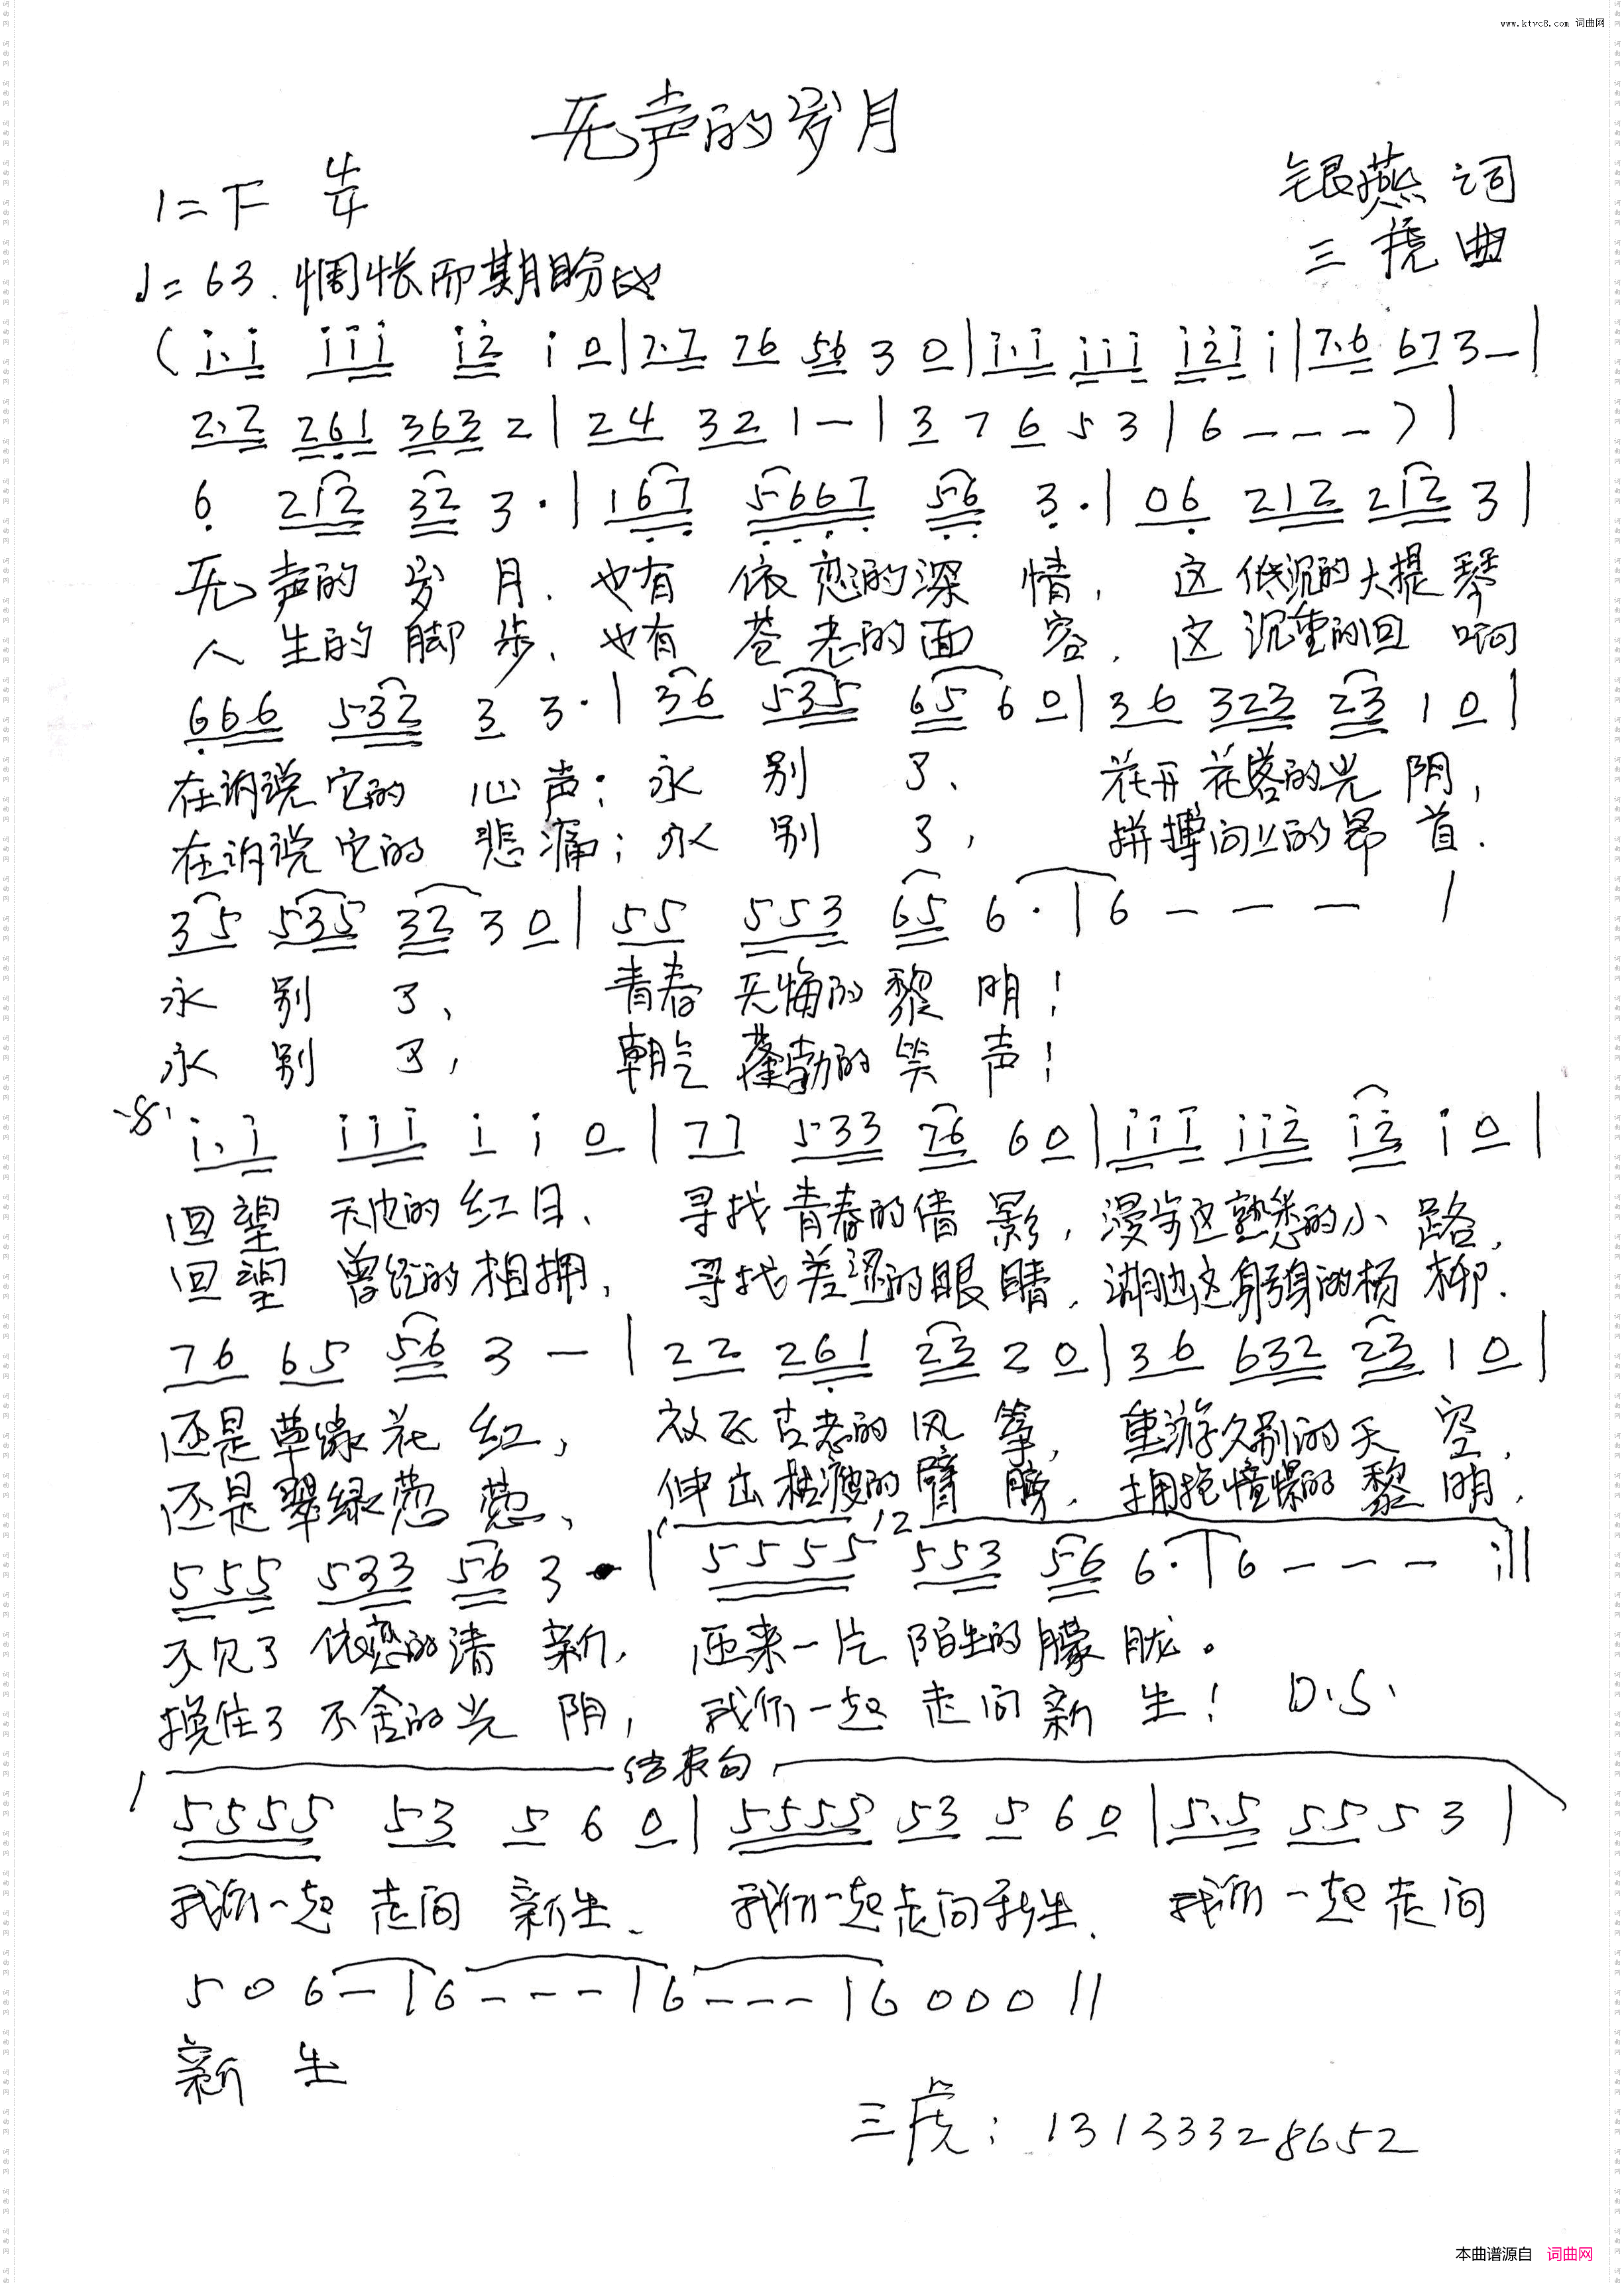 www.ktvc8.com 词曲网
无声的岁月
1=F 4/4
银燕 词
三 曲
♩=63. 惆怅而期盼地
(i.i iii i2 i 0|7.7 76 56 3 0|i.i iii i2i i|7.6 67 3 —|
2.2 261 363 2|24 32 1 —|3 7 6 5 3|6 — — —)|
6 212 32 3 ·|167 5667 56 3 ·|06 212 212 3|
无声的岁月、也有依恋的深情，这低沉的大提琴
人生的脚步、也有苍老的面容，这沉重的回响
666 532 3 3 ·|36 535 65 6 0|36 323 23 1 0|
在诉说它的心声；永别了、花开花落的光阴，
在诉说它的悲痛；永别了，拼搏向上的昂首.
35 535 32 3 0|55 553 65 6 ·|6 — — —|
永别了、青春无悔的黎明！
永别了，朝气蓬勃的笑声！
i.i iii i i 0|77 533 76 6 0|iii ii2 i2 i 0|
回望天边的红日、寻找青春的倩影，漫步这熟悉的小路，
回望曾经的相拥，寻找羞涩的眼睛，湖边这躬身的杨柳.
76 65 56 3 —|22 261 23 2 0|36 632 23 1 0|
还是草绿花红，放飞古老的风筝，重游久别的天空，
还是翠绿葱葱、伸出枯瘦的臂膀，拥抱憧憬的黎明，
1 2
555 533 56 3 ·|5555 553 56 6 ·|6 — — — :||
不见了依恋的清新，迎来一片陌生的朦胧。
挽住了不舍的光阴，我们一起走向新生！ D.S.
结束句
5555 53 5 6 0|5555 53 5 6 0|5.5 55 5 3|
我们一起走向新生、我们一起走向新生、我们一起走向
5 0 6 —|6 — — —|6 — — —|6 0 0 0||
新生
三虎：13133328652
本曲谱源自 词曲网